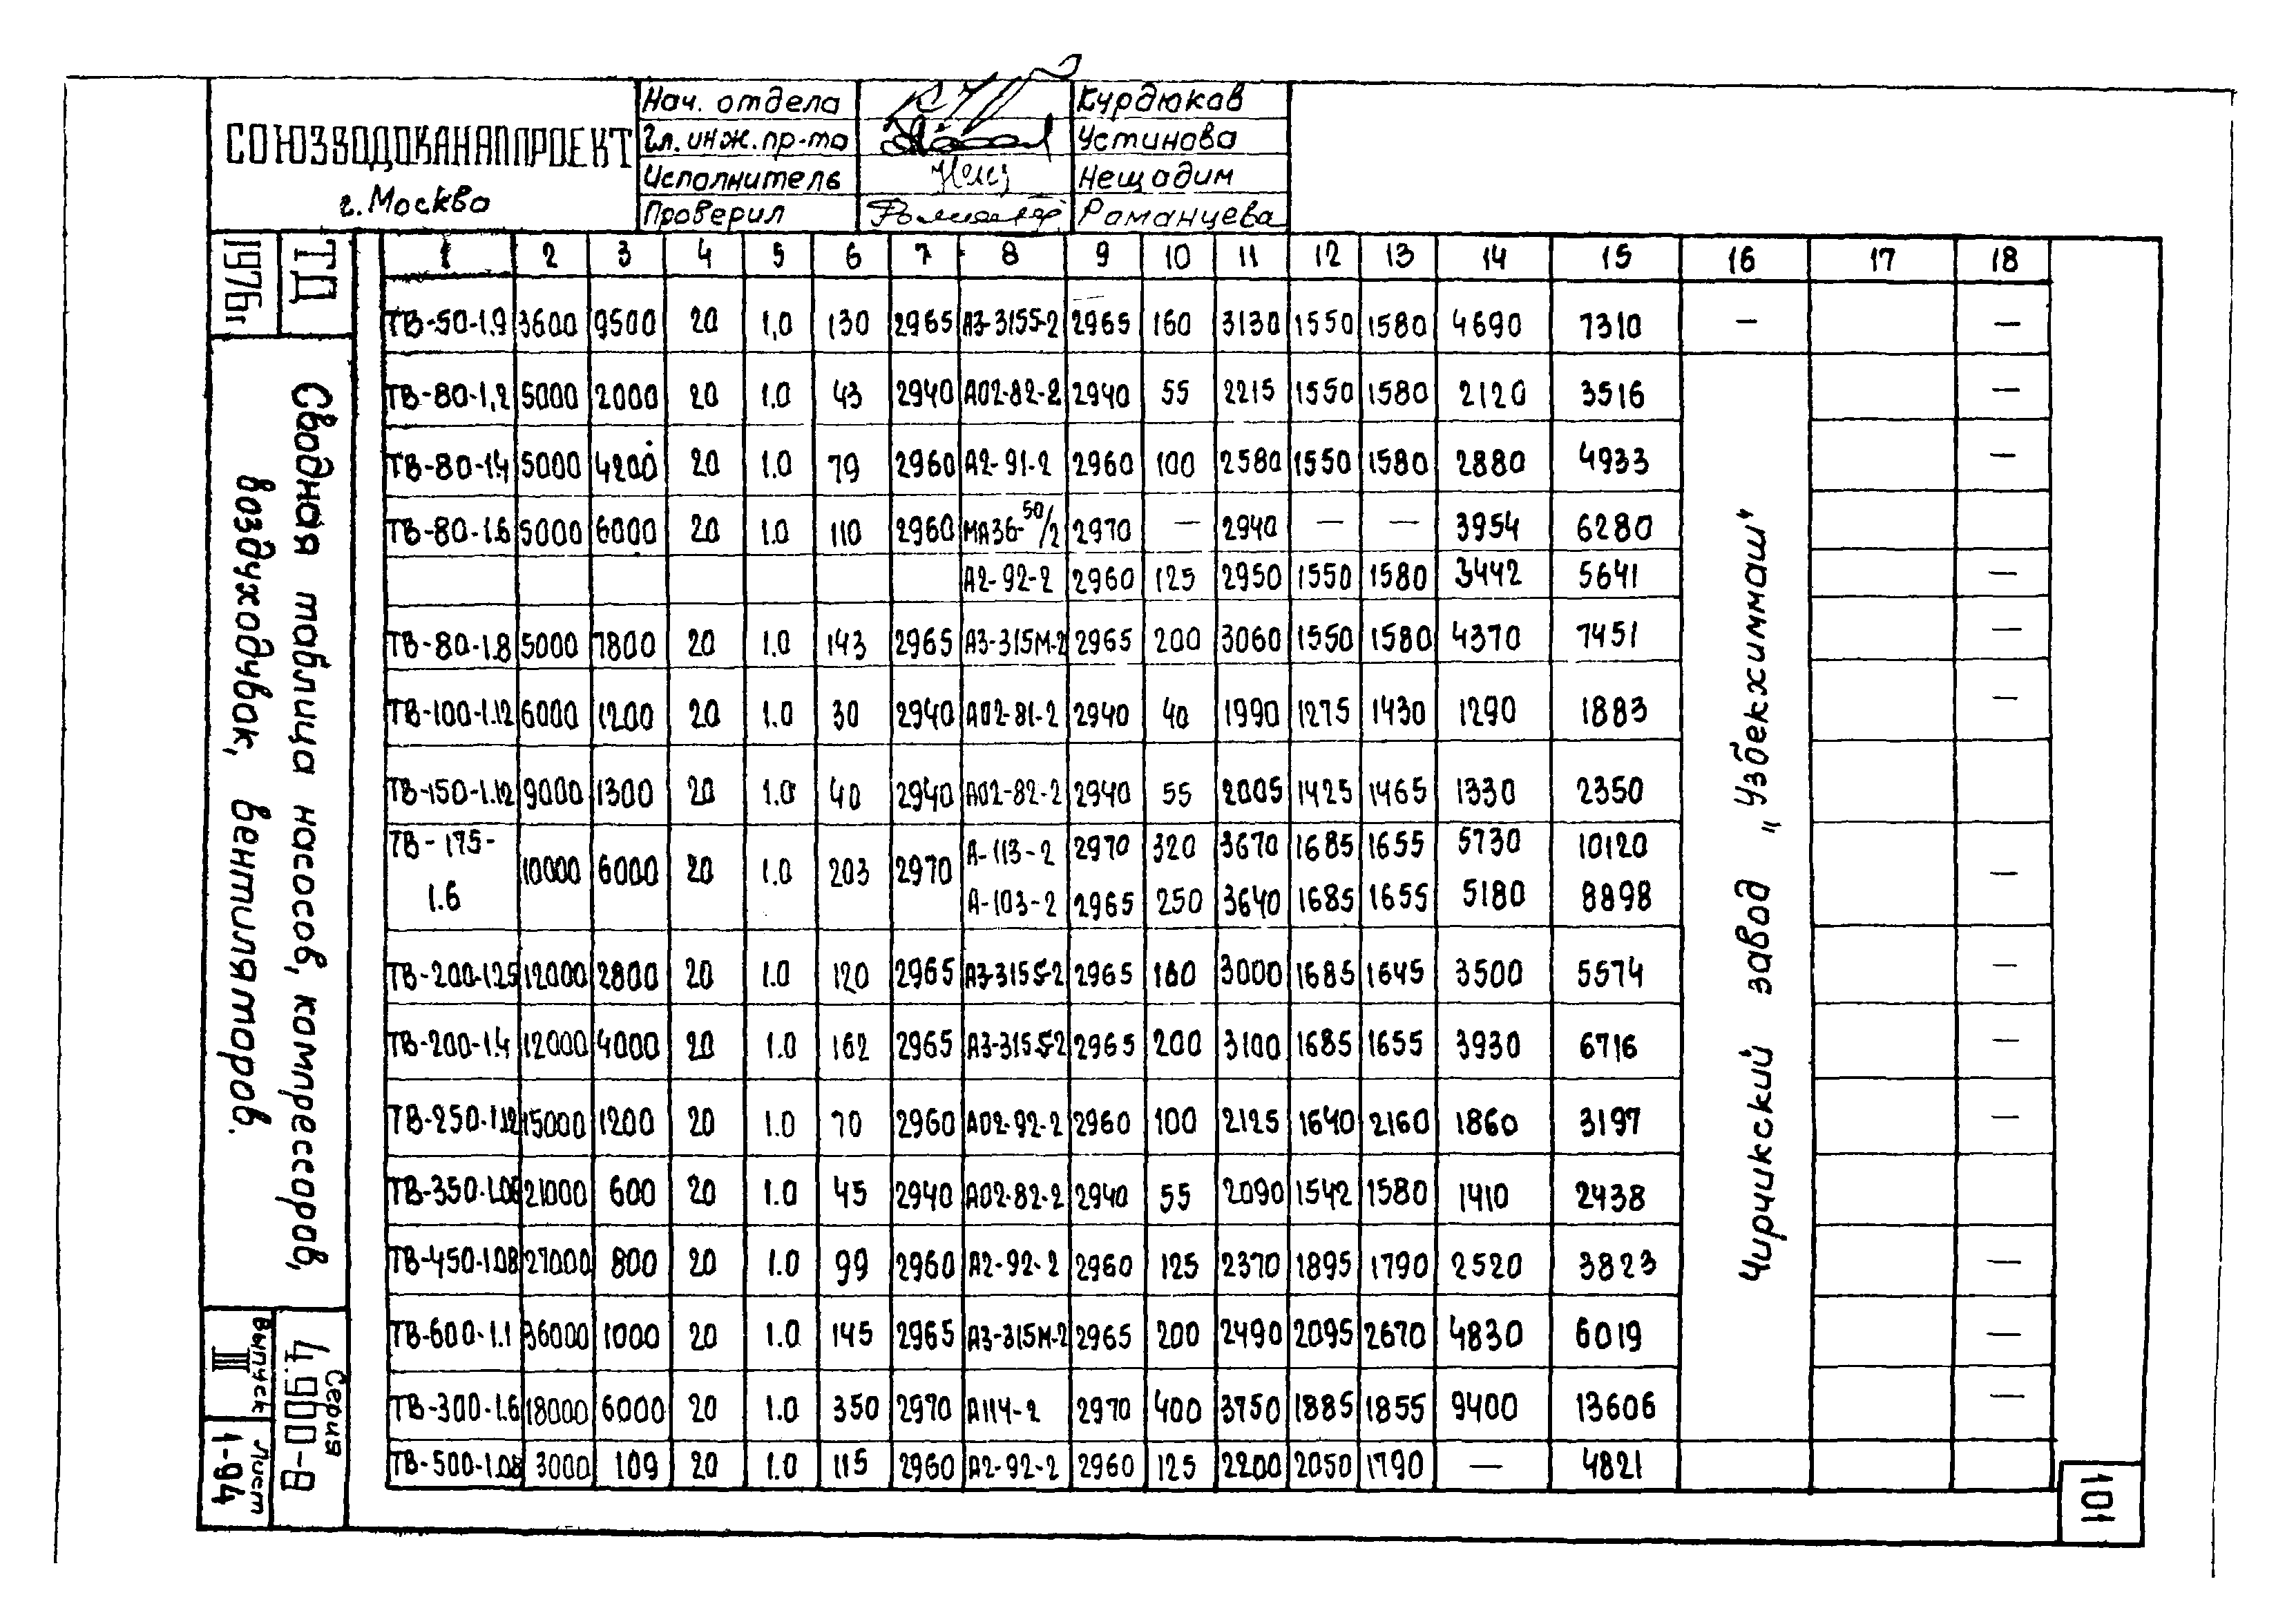 СОЮЗВОДОКАНАЛПРОЕКТ
г. Москва
Нач. отдела Курдюков
Гл. инж. пр-та Устинова
Исполнитель Нещадим
Проверил Романцева
1976г.
ТД
Сводная таблица насосов, компрессоров,
воздуходувок, вентиляторов.
Серия
4.900-8
Выпуск
III
Лист
1-94
1 2 3 4 5 6 7 8 9 10 11 12 13 14 15 16 17 18
ТВ-50-1.9 3600 9500 20 1,0 130 2965 А3-315S-2 2965 160 3130 1550 1580 4690 7310 — —
ТВ-80-1,2 5000 2000 20 1.0 43 2940 А02-82-2 2940 55 2215 1550 1580 2120 3516 —
ТВ-80-1.4 5000 4200 20 1.0 79 2960 А2-91-2 2960 100 2580 1550 1580 2880 4933 —
ТВ-80-1.6 5000 6000 20 1.0 110 2960 МА36-50/2 2970 — 2940 — — 3954 6280
А2-92-2 2960 125 2950 1550 1580 3442 5641 —
ТВ-80-1.8 5000 7800 20 1.0 143 2965 А3-315М-2 2965 200 3060 1550 1580 4370 7451 —
ТВ-100-1.12 6000 1200 20 1.0 30 2940 А02-81-2 2940 40 1990 1275 1430 1290 1883 —
ТВ-150-1.12 9000 1300 20 1.0 40 2940 А02-82-2 2940 55 2005 1425 1465 1330 2350
ТВ-175-
1.6 10000 6000 20 1.0 203 2970 —
А-113-2 2970 320 3670 1685 1655 5730 10120
А-103-2 2965 250 3640 1685 1655 5180 8898
ТВ-200-1.25 12000 2800 20 1.0 120 2965 А3-315S-2 2965 160 3000 1685 1645 3500 5574 —
ТВ-200-1.4 12000 4000 20 1.0 162 2965 А3-315S-2 2965 200 3100 1685 1655 3930 6716 —
ТВ-250-1.12 15000 1200 20 1.0 70 2960 А02-92-2 2960 100 2125 1640 2160 1860 3197 —
ТВ-350-1.06 21000 600 20 1.0 45 2940 А02-82-2 2940 55 2090 1542 1580 1410 2438
ТВ-450-1.08 27000 800 20 1.0 99 2960 А2-92-2 2960 125 2370 1895 1790 2520 3823 —
ТВ-600-1.1 36000 1000 20 1.0 145 2965 А3-315М-2 2965 200 2490 2095 2670 4830 6019 —
ТВ-300-1.6 18000 6000 20 1.0 350 2970 А114-2 2970 400 3750 1885 1855 9400 13606 —
ТВ-500-1.08 3000 109 20 1.0 115 2960 А2-92-2 2960 125 2200 2050 1790 — 4821
Чирчикский завод „Узбекхиммаш"
101